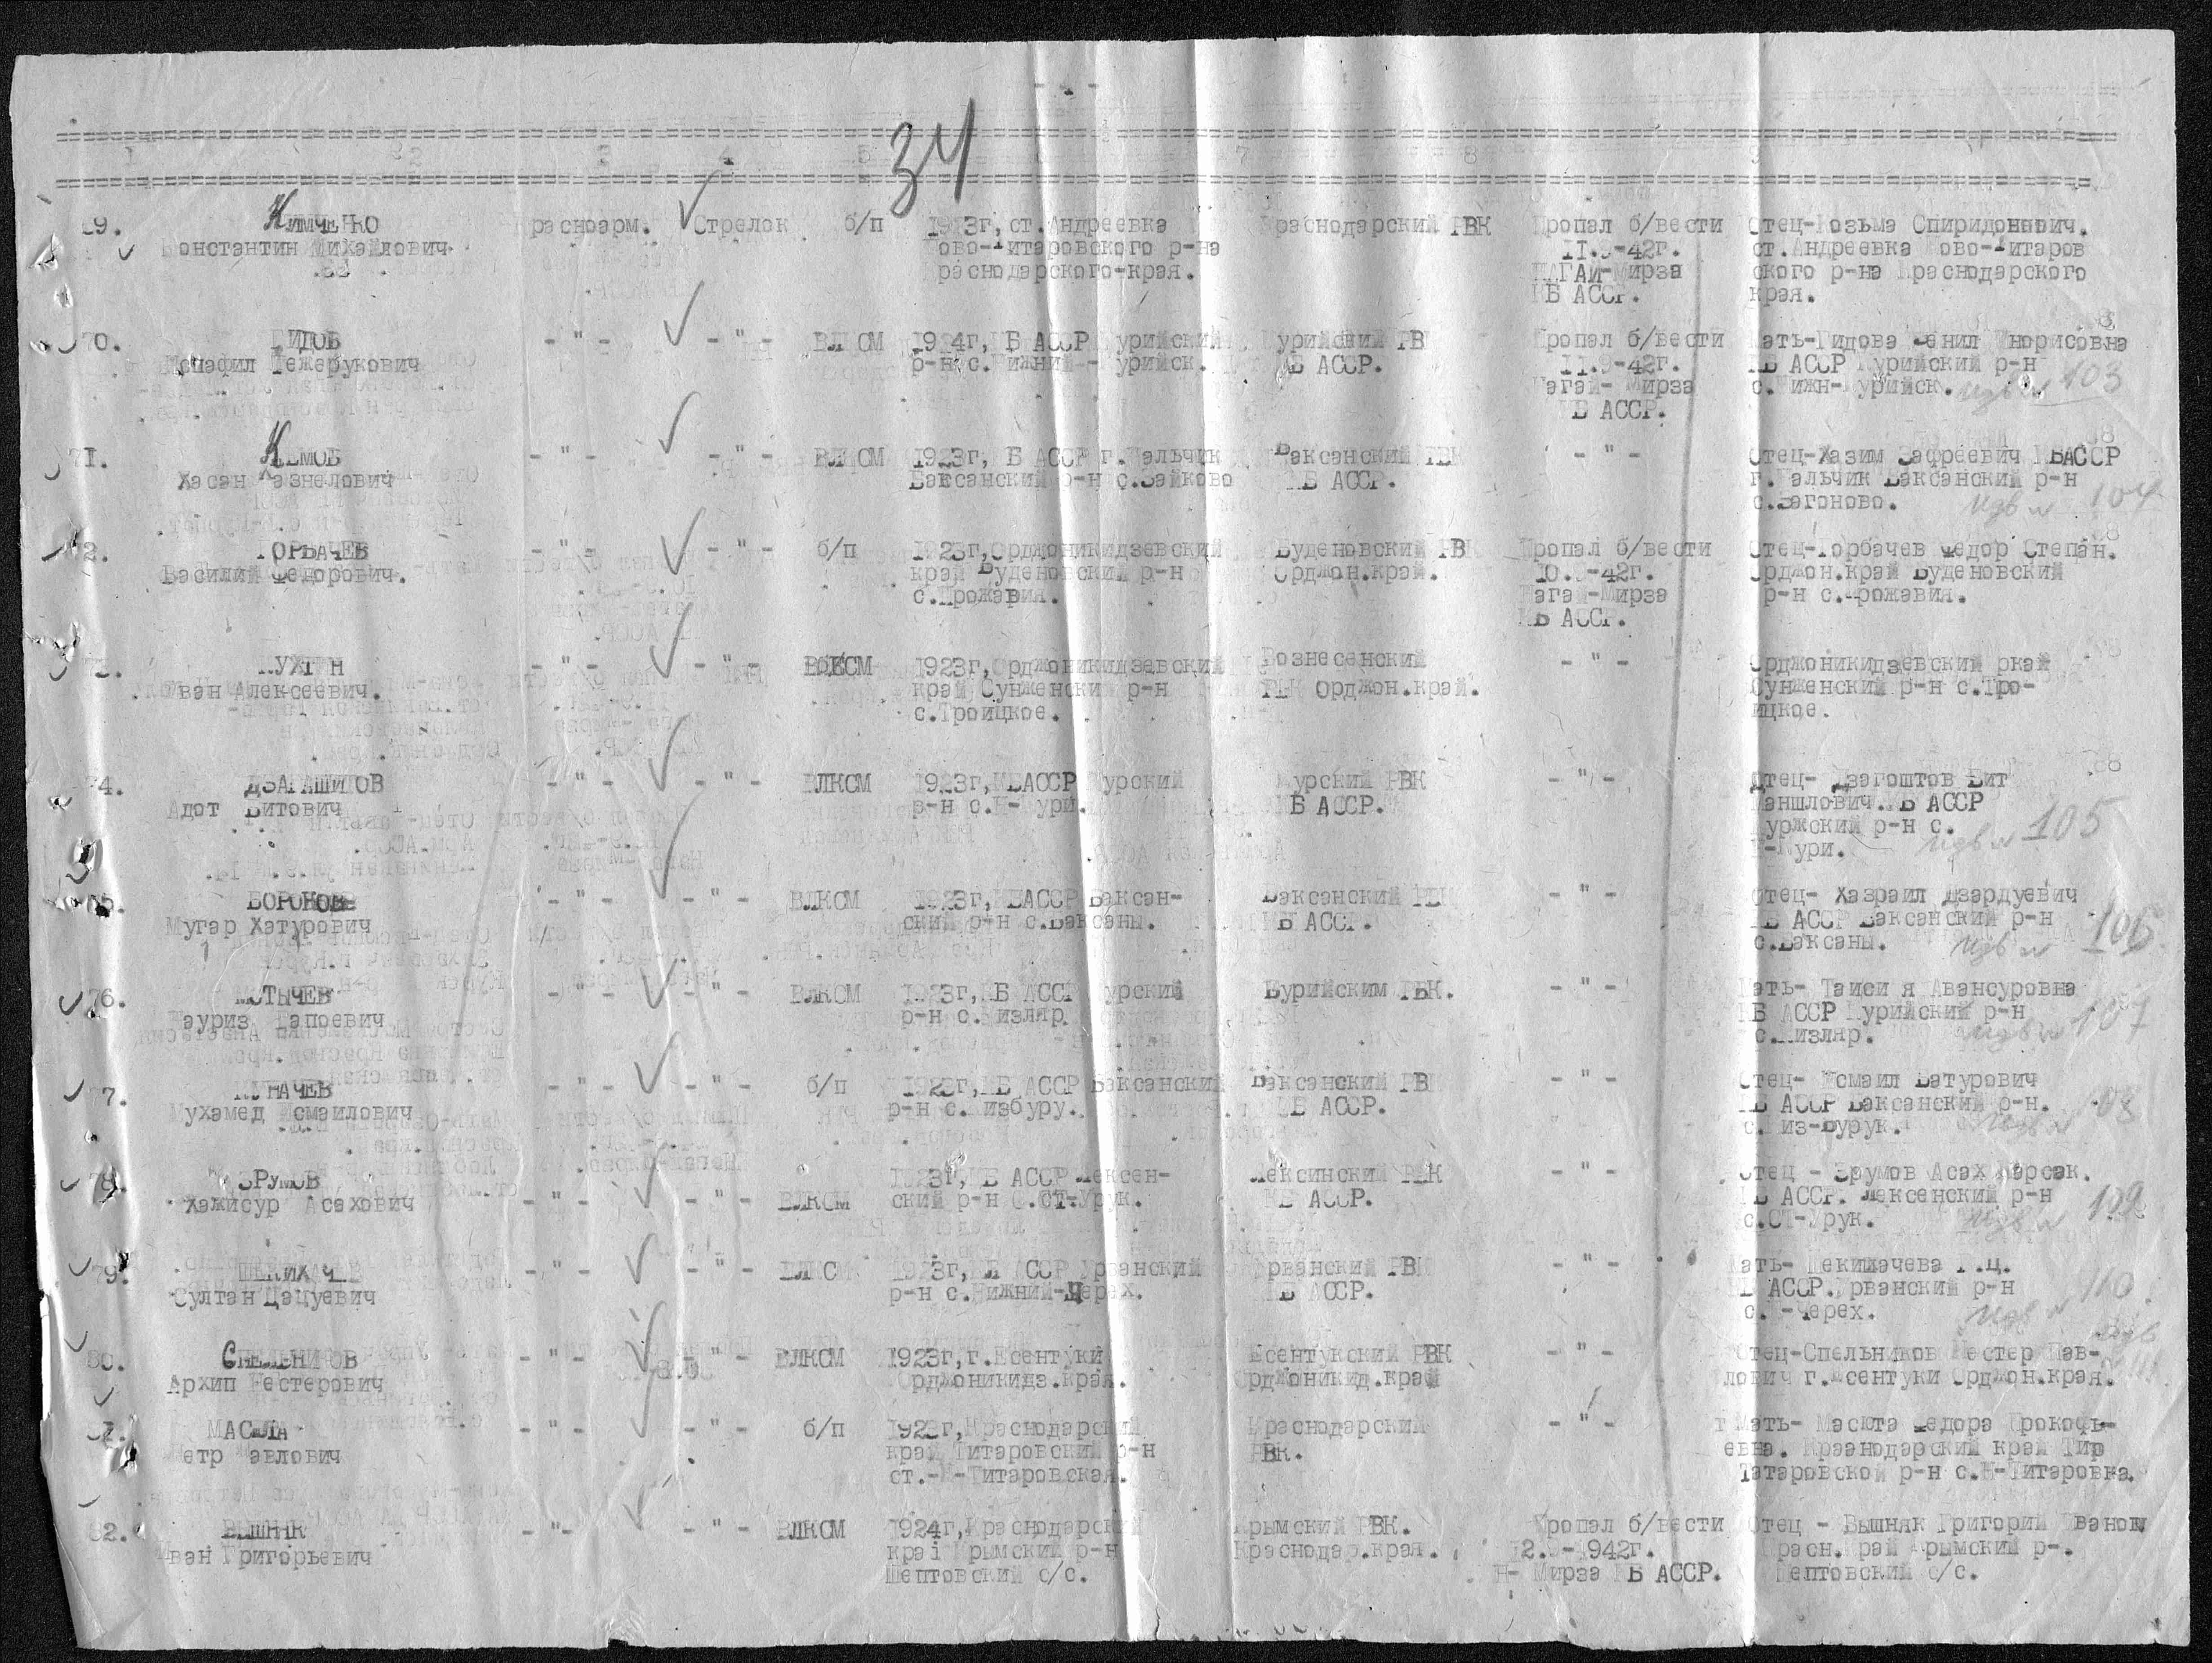 34
1 2 3 4 5 6 7 8 9
69. КИМЧЕНКО Красноарм. Стрелок б/п 1913г, ст.Андреевка Краснодарский РВК Пропал б/вести Отец-Козьма Спиридонович.
Константин Михайлович Ново-Титаровского р-на 11.9-42г. ст.Андреевка Ново-Титаров
Краснодарского-края. НАГАЙ-Мирза ского р-на Краснодарского
КБ АССР. края.
70. ГИДОВ -"- -"- ВЛКСМ 1924г, КБ АССР Курийский Курийский РВК Пропал б/вести Мать-Гидова
Тежерукович р-н с.Нижний-Курийск. КБ АССР. 11.9-42г. КБ АССР Курийский р-н
Нагай-Мирза с.Нижн-Курийск. Изв № 103
КБ АССР.
71. КЕМОВ -"- -"- ВЛКСМ 1923г, КБ АССР г.Нальчик Баксанский РВК -"- Отец-Хазим Зафреевич КБАССР
Хасан Казнелович Баксанский р-н с.Зайково КБ АССР. г.Нальчик Баксанский р-н
с.Загоново. Изв № 104
72. ГОРБАЧЕВ -"- -"- б/п 1923г,Орджоникидзевский Буденовский РВК Пропал б/вести Отец-Горбачев Федор Степан.
Василий Федорович. край Буденовский р-н Орджон.край. 10.9-42г. Орджон.край Буденовский
с.Прожавия. Нагай-Мирза р-н с.Прожавия.
КБ АССР.
-"- -"- ВЛКСМ 1923г,Орджоникидзевский Вознесенский -"- Орджоникидзевский ркай
Иван Алексеевич. край Сунженский р-н РВК Орджон.край. Сунженский р-н с.Тро-
с.Троицкое. ицкое.
74. ДЗАГАШТОВ -"- -"- ВЛКСМ 1923г,КБАССР Курский Курский РВК -"- Отец- Дзагоштов Бит
Адот Битович р-н с.Н-Кури. КБ АССР. КБ АССР
Куржский р-н с.
Н-Кури. Изв № 105
75. БОРОКОВ -"- -"- ВЛКСМ 1923г,КБАССР Баксан- Баксанский РВК -"- Отец- Хазраил Дзардуевич
Мугар Хатурович ский р-н с.Баксаны. КБ АССР. КБ АССР Баксанский р-н
с.Баксаны. Изв № 106
76. -"- -"- ВЛКСМ 1923г,КБ АССР Курский Курийским РВК. -"- Мать- Таисия Авансуровна
р-н с.Кизляр КБ АССР Курийский р-н
с.Кизляр. Изв № 107
77. -"- -"- б/п 1923г,КБ АССР Баксанский Баксанский РВК -"- Отец- Исмаил Батурович
Мухамед Исмаилович р-н с.Кизбуру. КБ АССР. КБ АССР Баксанский р-н.
с.Киз-Бурук. Изв № 108
78. ЗРУМОВ 1923г,КБ АССР Лексен- Лексинский РВК -"- Отец - Зрумов Асах
Хажисур Асахович -"- -"- ВЛКСМ ский р-н с.СТ-Урук. КБ АССР. КБ АССР. Лексенский р-н
с.СТ-Урук. Изв № 109
79. -"- -"- ВЛКСМ 1923г,КБ АССР Урванский Урванский РВК -"- Мать- Шекихачева
Султан Дацуевич р-н с.Нижний-Черех. КБ АССР. КБ АССР.Урванский р-н
с.Н-Черех. Изв № 110
80. СПЕЛЬНИКОВ -"- -"- ВЛКСМ 1923г,г.Есентуки Есентукский РВК -"- Отец-Спельников Нестер Пав-
Архип Нестерович Орджоникидз.края. Орджоникид.край лович г.Есентуки Орджон.края.
81. МАСЮТА -"- -"- б/п 1923г,Краснодарский Краснодарский -"- Мать- Масюта Федора Прокофь-
Петр Павлович край Титаровский р-н РВК. евна. Краанодарский край Тир
ст.-Н-Титаровская. Татаровской р-н с.Н-Титаровка.
82. ВЫШНЯК -"- -"- ВЛКСМ 1924г,Краснодарский Крымский РВК. Пропал б/вести Отец - Вышняк Григорий Иванов
Иван Григорьевич край Крымский р-н Краснодар.края. 12.9-1942г. Красн.край Крымский р-.
Шептовский с/с. Н-Мирза КБ АССР. Шептовский с/с.